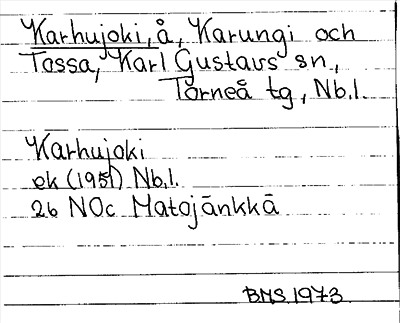 Karhujoki, å, Karungi och
Tossa, Karl Gustavs sn,
Torneå tg, Nb.l.
Karhujoki
ek (1951) Nb.l.
26 NOc Matojänkkä
BMS 1973